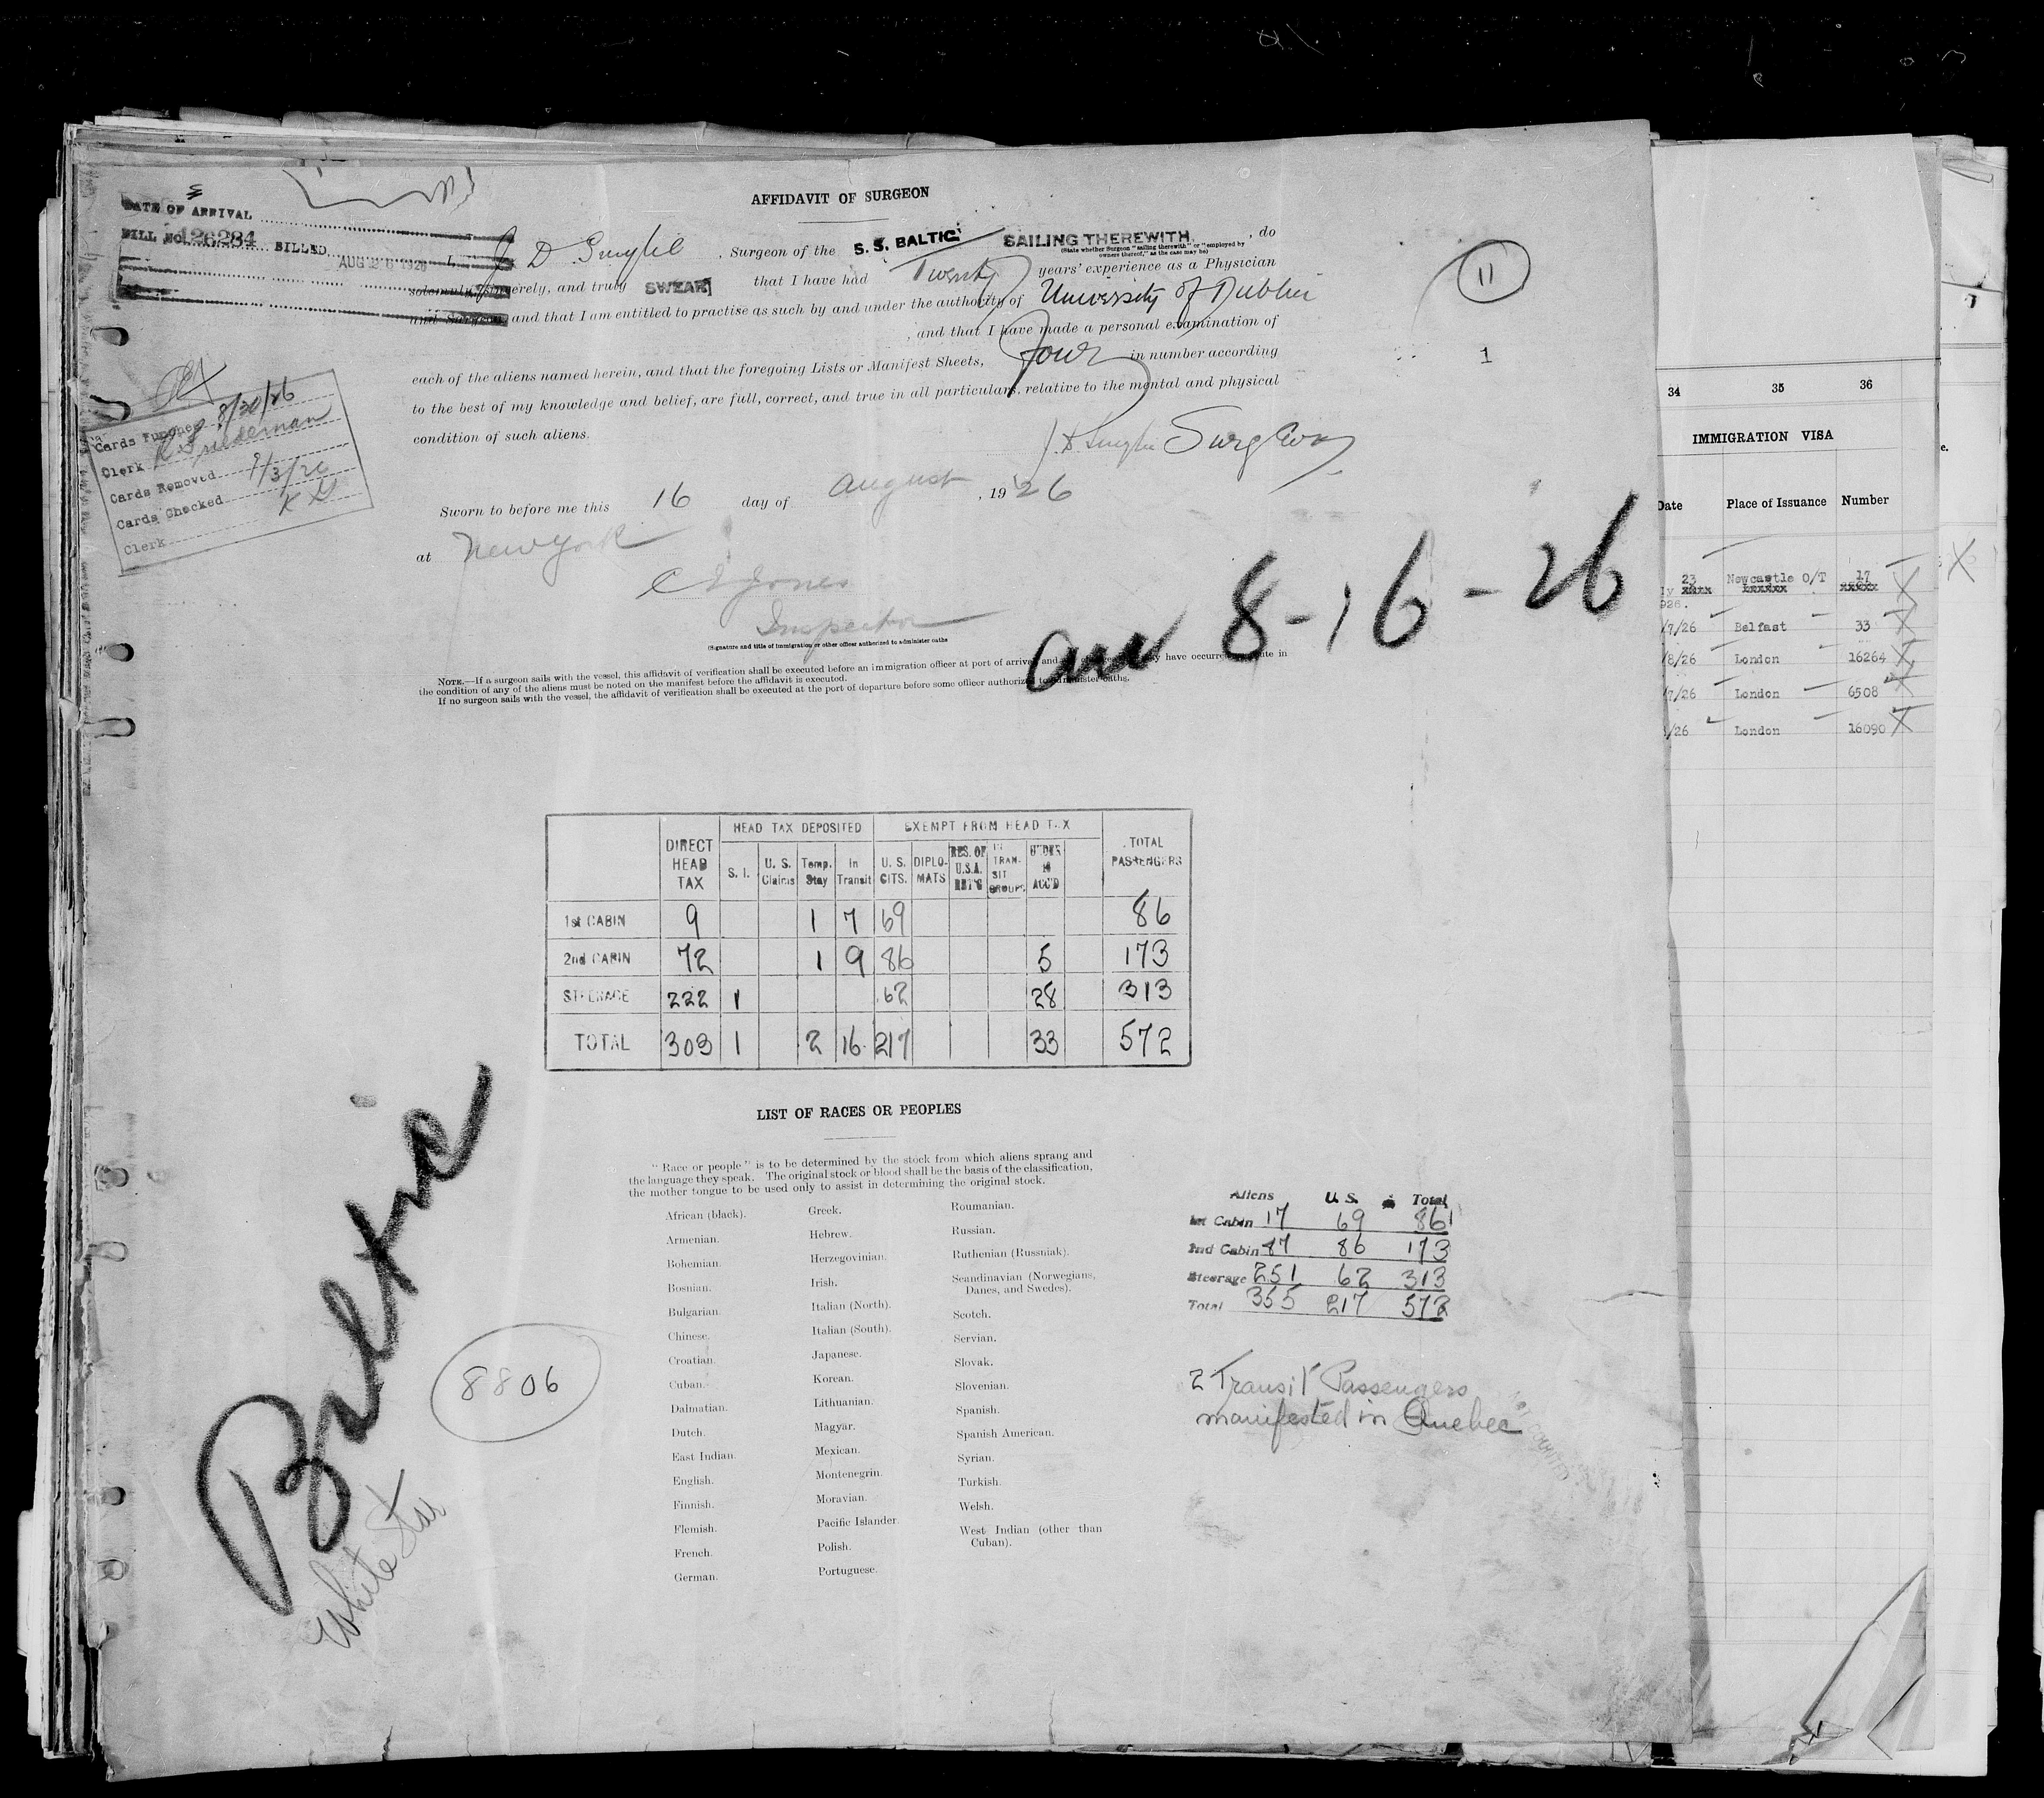 AFFIDAVIT OF SURGEON
DATE OF ARRIVAL
BILL NO. 126284 BILLED
AUG 26 1926
I, J D , Surgeon of the S. S. BALTIC SAILING THEREWITH , do
(State whether Surgeon "sailing therewith" or "employed by
owners thereof," as the case may be)
solemnly, sincerely, and truly SWEAR that I have had Twenty years' experience as a Physician
and Surgeon, and that I am entitled to practise as such by and under the authority of University of Dublin
, and that I have made a personal examination of
each of the aliens named herein, and that the foregoing Lists or Manifest Sheets, Four in number according
to the best of my knowledge and belief, are full, correct, and true in all particulars, relative to the mental and physical
condition of such aliens.
J. D. Surgeon
Sworn to before me this 16 day of August , 1926
at New York
Jones
Inspector
(Signature and title of immigration or other officer authorized to administer oaths
NOTE.—If a surgeon sails with the vessel, this affidavit of verification shall be executed before an immigration officer at port of arrival and have occurred in
the condition of any of the aliens must be noted on the manifest before the affidavit is executed.
If no surgeon sails with the vessel, the affidavit of verification shall be executed at the port of departure before some officer authorized to administer oaths.
11
1
Cards Punched 8/30/26
Clerk Friedeman
Cards Removed 9/3/26
Cards Checked
Clerk
arr 8-16-26
DIRECT HEAD TAX
HEAD TAX DEPOSITED
EXEMPT FROM HEAD TAX
TOTAL PASSENGERS
S. I.
U. S. Claims
Temp. Stay
In Transit
U. S. CITS.
DIPLO- MATS
RES. OF U.S.A. RET'G
IN TRAN- SIT GROUPS
UNDER 16 ACC'D
1st CABIN 9 1 7 69 86
2nd CABIN 72 1 9 86 5 173
STEERAGE 222 1 62 28 313
TOTAL 303 1 2 16 217 33 572
LIST OF RACES OR PEOPLES
"Race or people" is to be determined by the stock from which aliens sprang and
the language they speak. The original stock or blood shall be the basis of the classification,
the mother tongue to be used only to assist in determining the original stock.
African (black).
Armenian.
Bohemian.
Bosnian.
Bulgarian.
Chinese.
Croatian.
Cuban.
Dalmatian.
Dutch.
East Indian.
English.
Finnish.
Flemish.
French.
German.
Greek.
Hebrew.
Herzegovinian.
Irish.
Italian (North).
Italian (South).
Japanese.
Korean.
Lithuanian.
Magyar.
Mexican.
Montenegrin.
Moravian.
Pacific Islander.
Polish.
Portuguese.
Roumanian.
Russian.
Ruthenian (Russniak).
Scandinavian (Norwegians,
Danes, and Swedes).
Scotch.
Servian.
Slovak.
Slovenian.
Spanish.
Spanish American.
Syrian.
Turkish.
Welsh.
West Indian (other than
Cuban).
Aliens U. S. Total
1st Cabin 17 69 86
2nd Cabin 87 86 173
Steerage 251 62 313
Total 355 217 572
2 Transit Passengers
manifested in Quebec
Baltic
White Star
8806
34 35 36
IMMIGRATION VISA
Date Place of Issuance Number
23 Newcastle O/T 17
926.
/7/26 Belfast 33
/8/26 London 16264
/7/26 London 6508
/26 London 16090